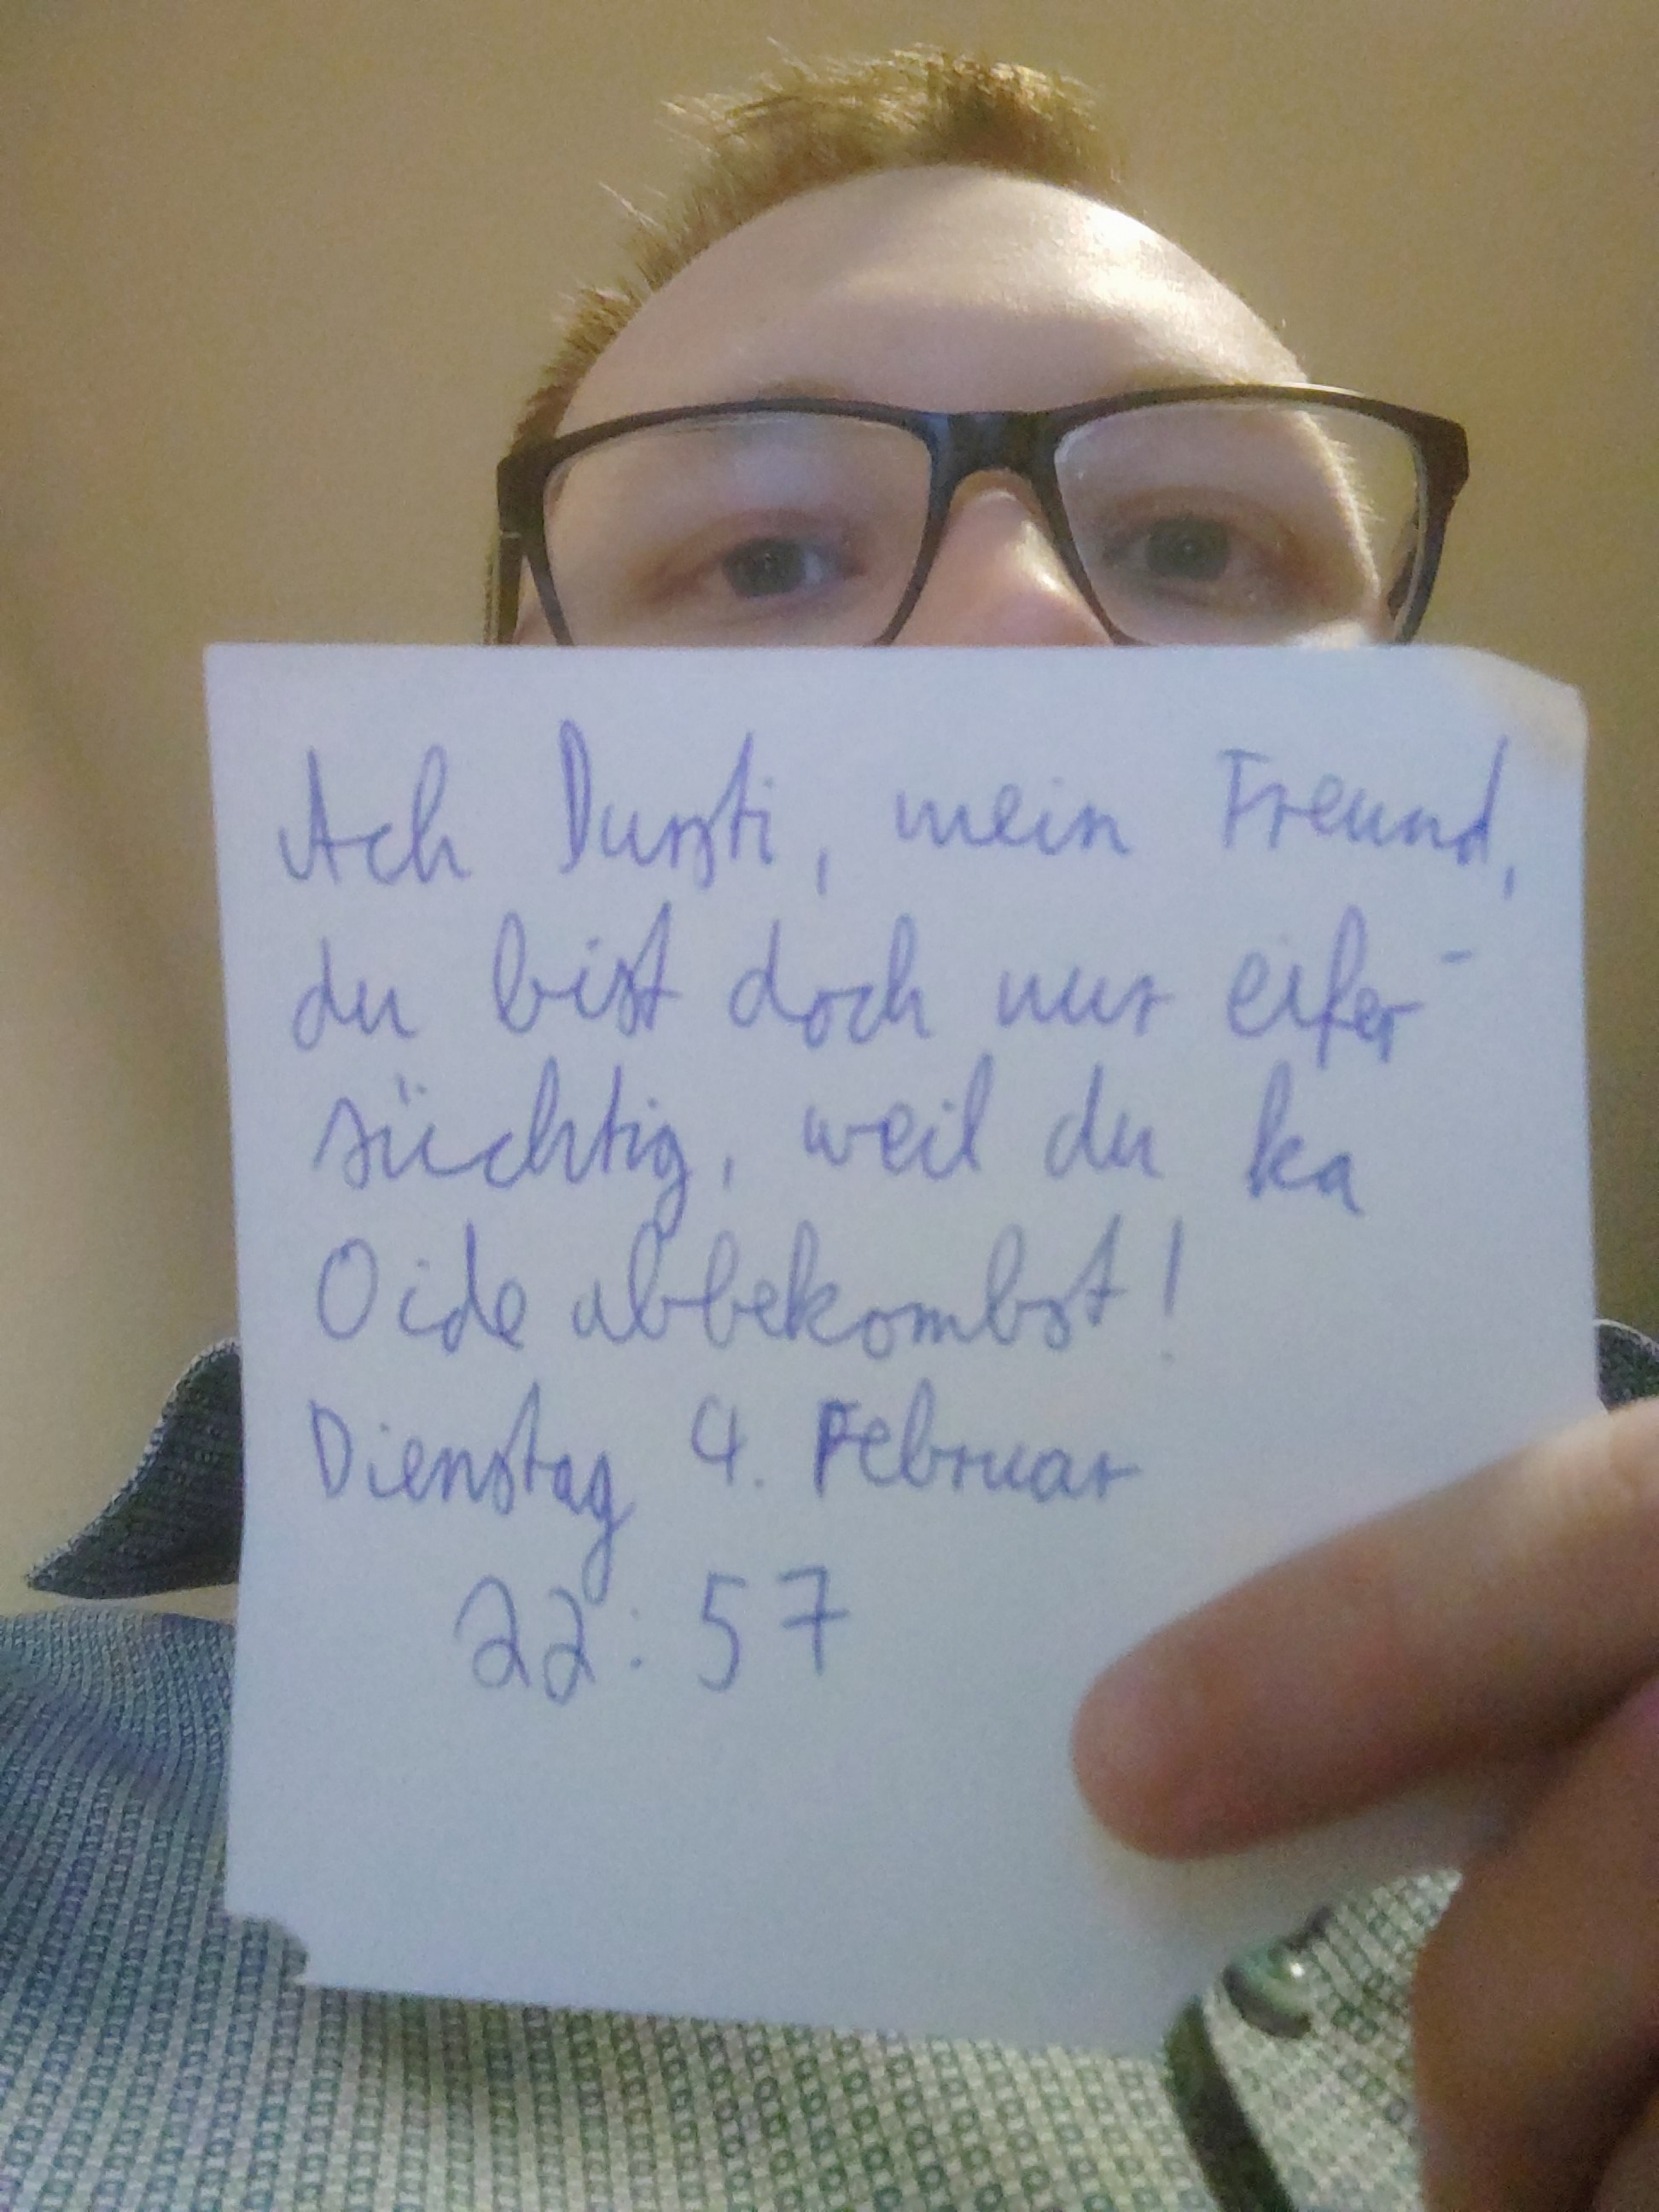 Ach Durzti, mein Freund,
du bist doch nur eifer-
süchtig, weil du ka
Oide abbekombst!
Dienstag 4. Februar
22:57